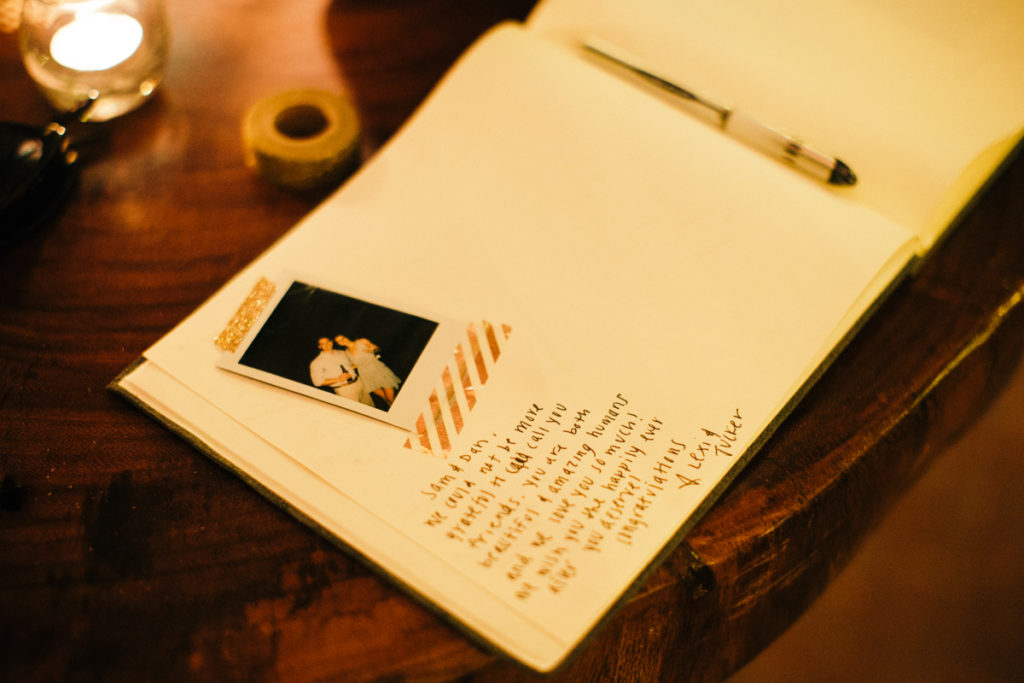 Sam & Dan,
we could not be more
grateful to call you
friends. You are both
beautiful & amazing humans
and we love you so much!
we wish you the happily ever
after you deserve!
Congratulations
& Lexi &
Tucker